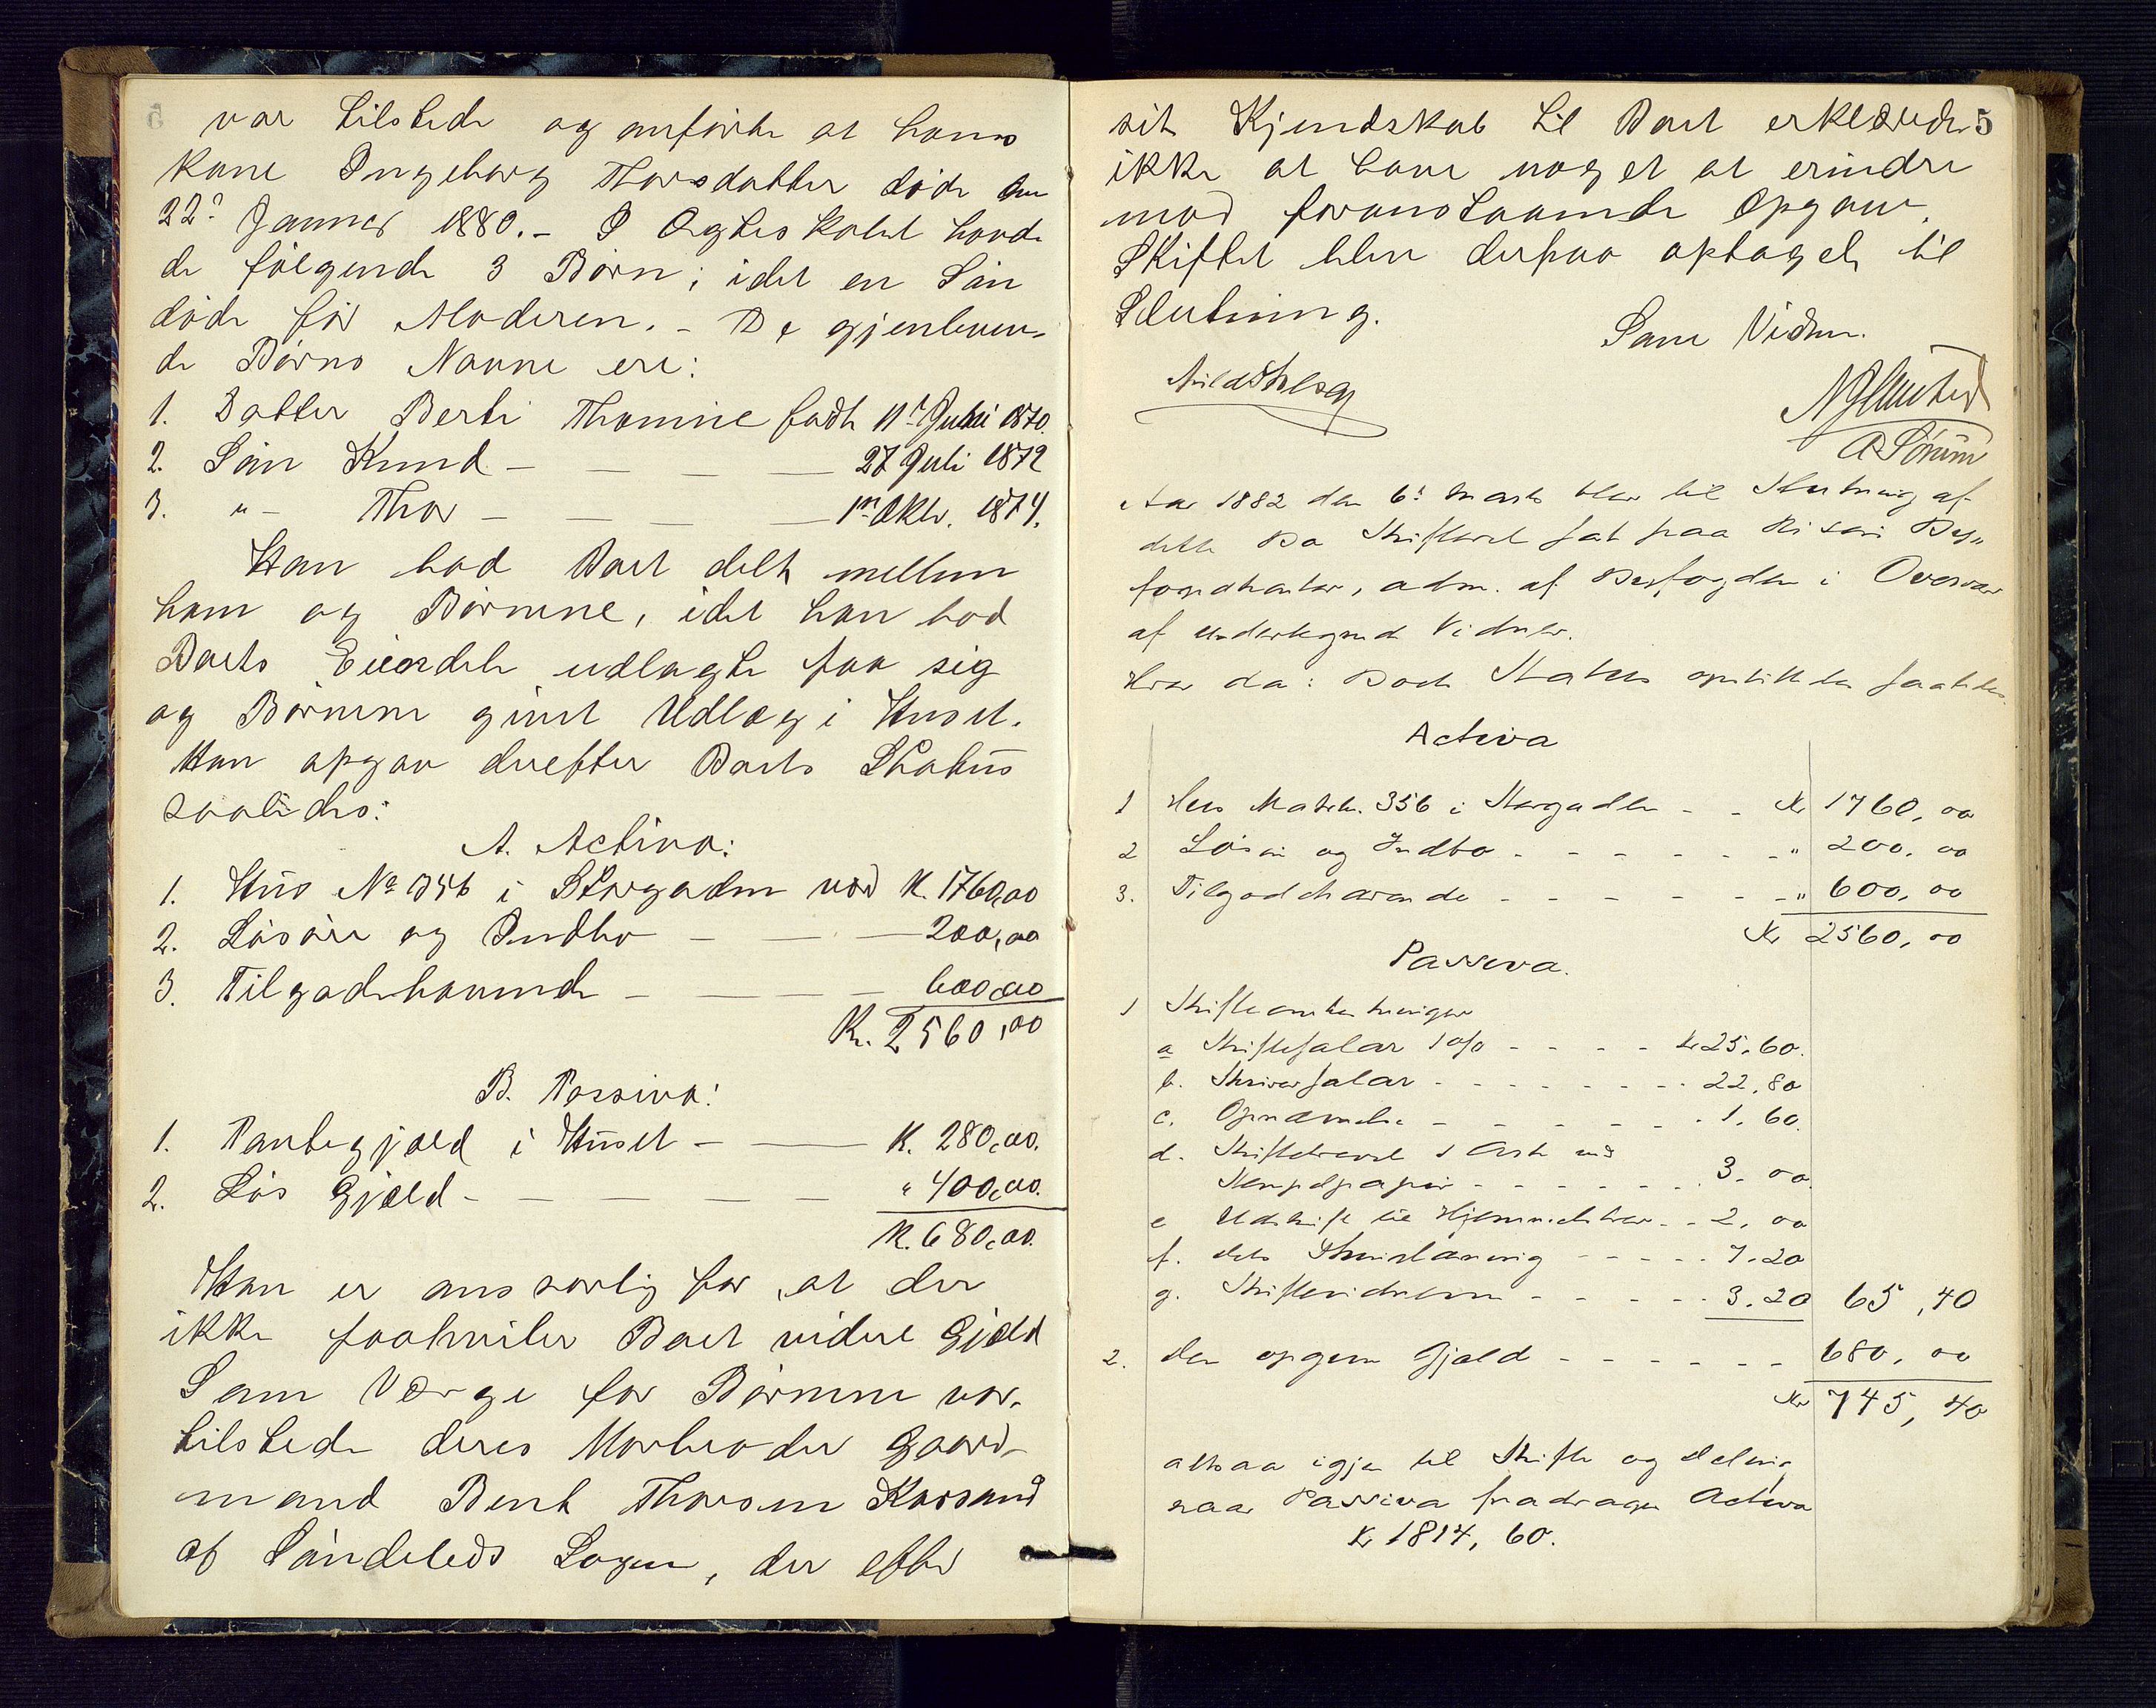 var tilstede og anførte at hans
Kone Ingeborg Thorsdatter døde den
22d Januar 1880. - I Ægteskabet havde
de følgende 3 Børn; idet en Søn
døde før Moderen. - De gjenleven-
de Børns Navne ere:
1. Datter Berti Thomine født 11te Juni 1870.
2. Søn Knud - - - - 27 Juli 1872
3. " - Thor - - - - 1ste Oktr. 1874.
Han bad Boet delt mellem
ham og Børnene, idet han bad
Boets Eiendele udlagte paa sig
og Børnene givet Udlæg i Huset.
Han opgav derefter Boets Status
saaledes:
A. Activa:
1. Hus No 356 i Storgaden værd K. 1760,00
2. Løsøre og Indbo - - - 200,00
3. Tilgodehavende - - - - 600,00
Kr. 2560,00
B. Passiva:
1. Pantegjæld i Huset - - K. 280,00.
2. Løs Gjæld - - - - - " 400,00.
K. 680,00.
Han er ansvarlig for, at der
ikke paahviler Boet videre Gjæld
Som Værge for Børnene var
tilstede deres Morbroder Gaard-
mand Bent Thorsen
af Søndeleds Sogn, der efter
5
sit Kjendskab til Boet erklærede
ikke at have noget at erindre
mod foranstaaende Opgave.
Skiftet blev derpaa optaget til
Slutning.
Som Vidner.
A Sørum
Aar 1882 den 6te Marts blev til Slutning af
dette Bo Skifteret sat paa Risør By-
fogedkontor, adm. af Byfogden i Overvær
af undertegnede Vidner.
Hvor da: Boets Status opstilledes saaledes
Activa
1 Hus Matr. 356 i Storgaden - - Kr 1760,00
2 Løsøre og Indbo - - - - - - " 200,00
3. Tilgodehavende - - - - - - " 600,00
Kr 2560,00
Passiva.
1 Skifteomkostninger
a Skiftesalær 1 o/o - - - - Kr 25,60.
b. Skriversalær - - - - - - - 22,80
c. Opnævnelse - - - - - - 1,60.
d. Skiftebrevet 1 Ark med
Stempelpapir - - - - - - 3.00.
e Udskift til Hjemmelsbrev - - 2,00
f. dets Thinglæsning - - - - - 7.20
g. Skiftevidnerne - - - - - 3.20 65,40
2. den opgivne Gjæld - - - - - - 680,00
Kr 745,40
altsaa igjen til Skifte og Deling
naar Passiva fradrages Activa
Kr 1814,60.